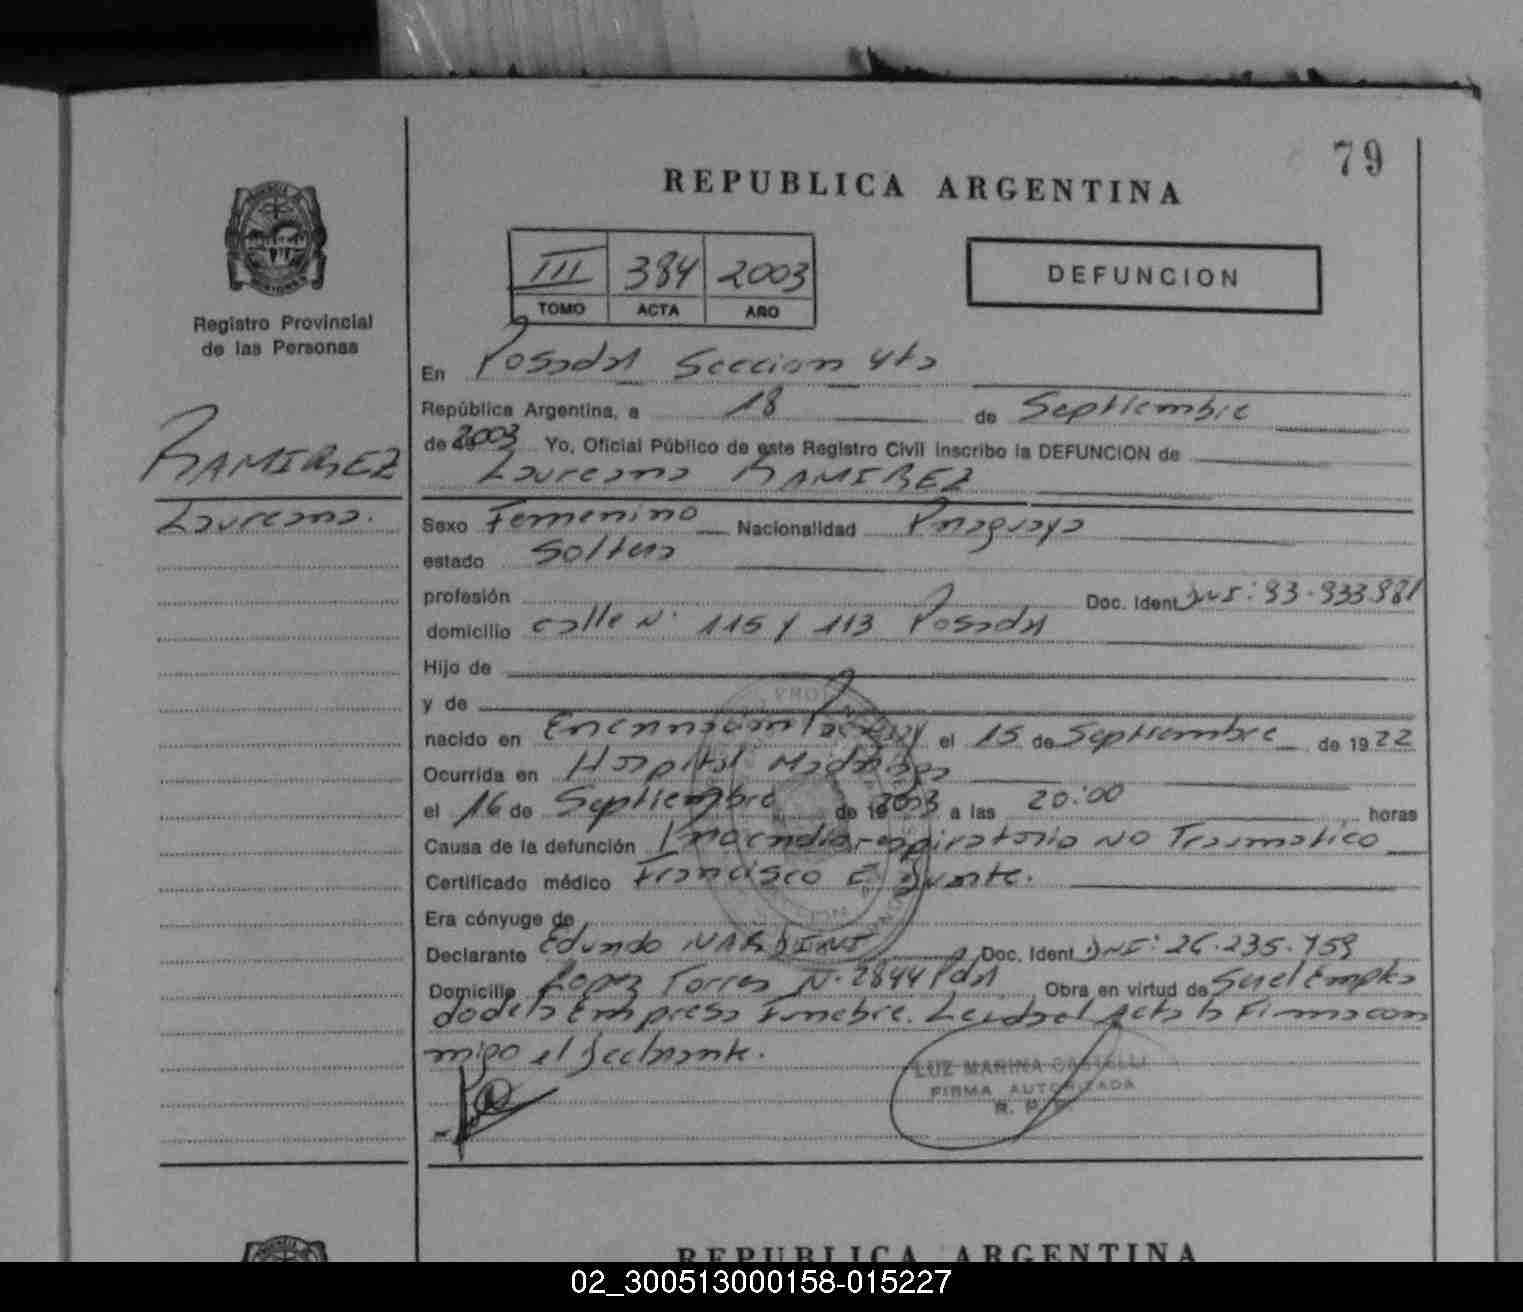 79
REPUBLICA ARGENTINA
III 384 2003
TOMO ACTA AÑO
DEFUNCION
Registro Provincial
de las Personas
RAMIREZ
Laureana.
En Posadas Seccion 4ta
República Argentina, a 18 de Septiembre
de 2003 Yo, Oficial Público de este Registro Civil inscribo la DEFUNCION de
Laureana RAMIREZ
Sexo Femenino Nacionalidad Paraguaya
estado Soltera
profesión Doc. Ident DNI: 93.933.981
domicilio calle N° 115 y 113 Posadas
Hijo de
y de
nacido en Encarnacion Paraguay el 15 de Septiembre de 1922
Ocurrida en Hospital Madariaga
el 16 de Septiembre de 2003 a las 20:00 horas
Causa de la defunción Paro cardio-respiratorio NO Traumatico
Certificado médico Francisco E Duarte.
Era cónyuge de
Declarante Eduardo NARDINI Doc. Ident DNI: 26.235.759
Domicilio Lopez Torres N° 2844 Pdas Obra en virtud de Ser el Emplea
do de la Empresa Funebre. Leida el Acta la Firma con
migo el Declarante.
LUZ MARINA CASTELLI
FIRMA AUTORIZADA
R. P. P.
REPUBLICA ARGENTINA
02_300513000158-015227